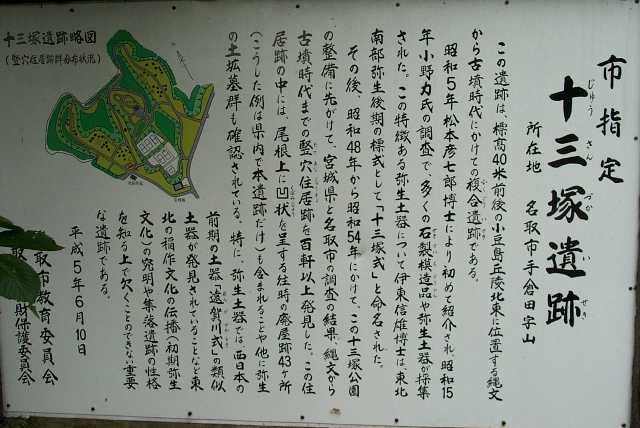 市指定
十三塚遺跡
じゅう さん づか い せき
所在地 名取市手倉田字山
この遺跡は、標高40米前後の小豆島丘陵北東に位置する縄文
から古墳時代にかけての複合遺跡である。
昭和5年松本彦七郎博士により初めて紹介され、昭和15
年小野力氏の調査で、多くの石製模造品や弥生土器が採集
された。この特徴ある弥生土器について伊東信雄博士は、東北
南部弥生後期の標式として「十三塚式」と命名された。
その後、昭和48年から昭和54年にかけて、この十三塚公園
の整備に先がけて、宮城県と名取市の調査の結果、縄文から
古墳時代までの竪穴住居跡を百軒以上発見した。この住
居跡の中には、尾根上に凹状を呈する往時の廃屋跡43ヶ所
(こうした例は県内で本遺跡だけ)も含まれることや他に弥生
の土拡墓群も確認されている。特に、弥生土器では、西日本の
前期の土器「遠賀川式」の類似
土器が発見されていることなど東
北の稲作文化の伝播(初期弥生
文化)の究明や集落遺跡の性格
を知る上で欠くことのできない重要
な遺跡である。
平成5年6月10日
取市教育委員会
取
財保護委員会
十三塚遺跡略図
(竪穴住居跡群分布状況)